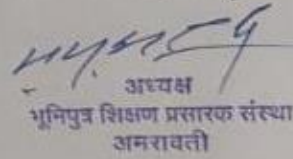 अध्यक्ष
भूमिपुत्र शिक्षण प्रसारक संस्था
अमरावती